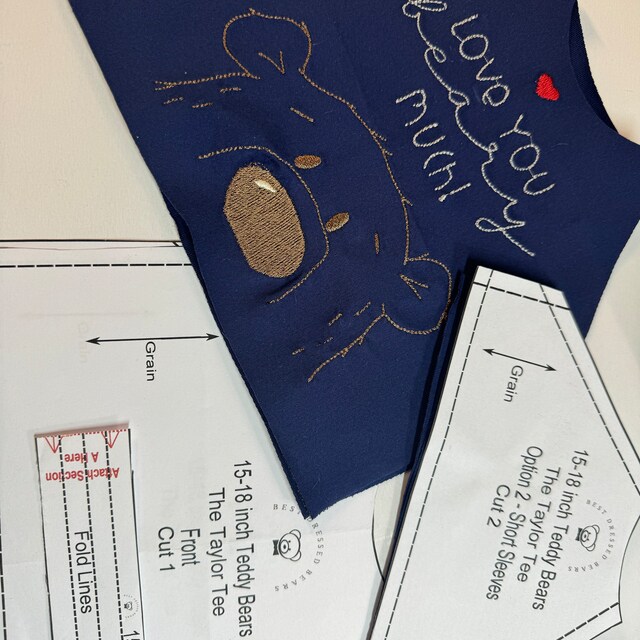 LOVE YOU
beary
much!
Grain
15-18 inch Teddy Bears
The Taylor Tee
Front
Cut 1
BEST DRESSED BEARS
Attach Section
A Here
Fold Lines
Grain
15-18 inch Teddy Bears
The Taylor Tee
Option 2 - Short Sleeves
Cut 2
BEST DRESSED BEARS